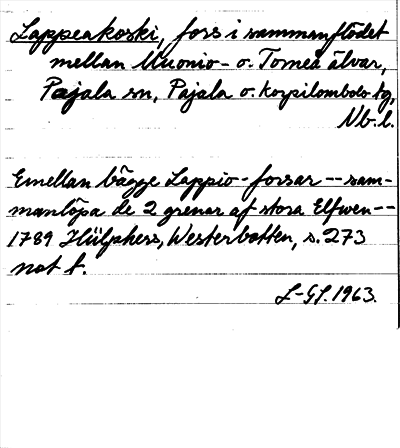 Lappeakoski, fors i sammanflödet
mellan Muonio- o. Torneå älvar,
Pajala sn, Pajala o. korpilombolo tg,
Nb. l.
Emellan bägge Lappio-- forsar -- sam-
manlöpa de 2 grenar af stora Elfwen--
1789 Hülphers, Westerbotten, s. 273
not f.
L-GL. 1963.